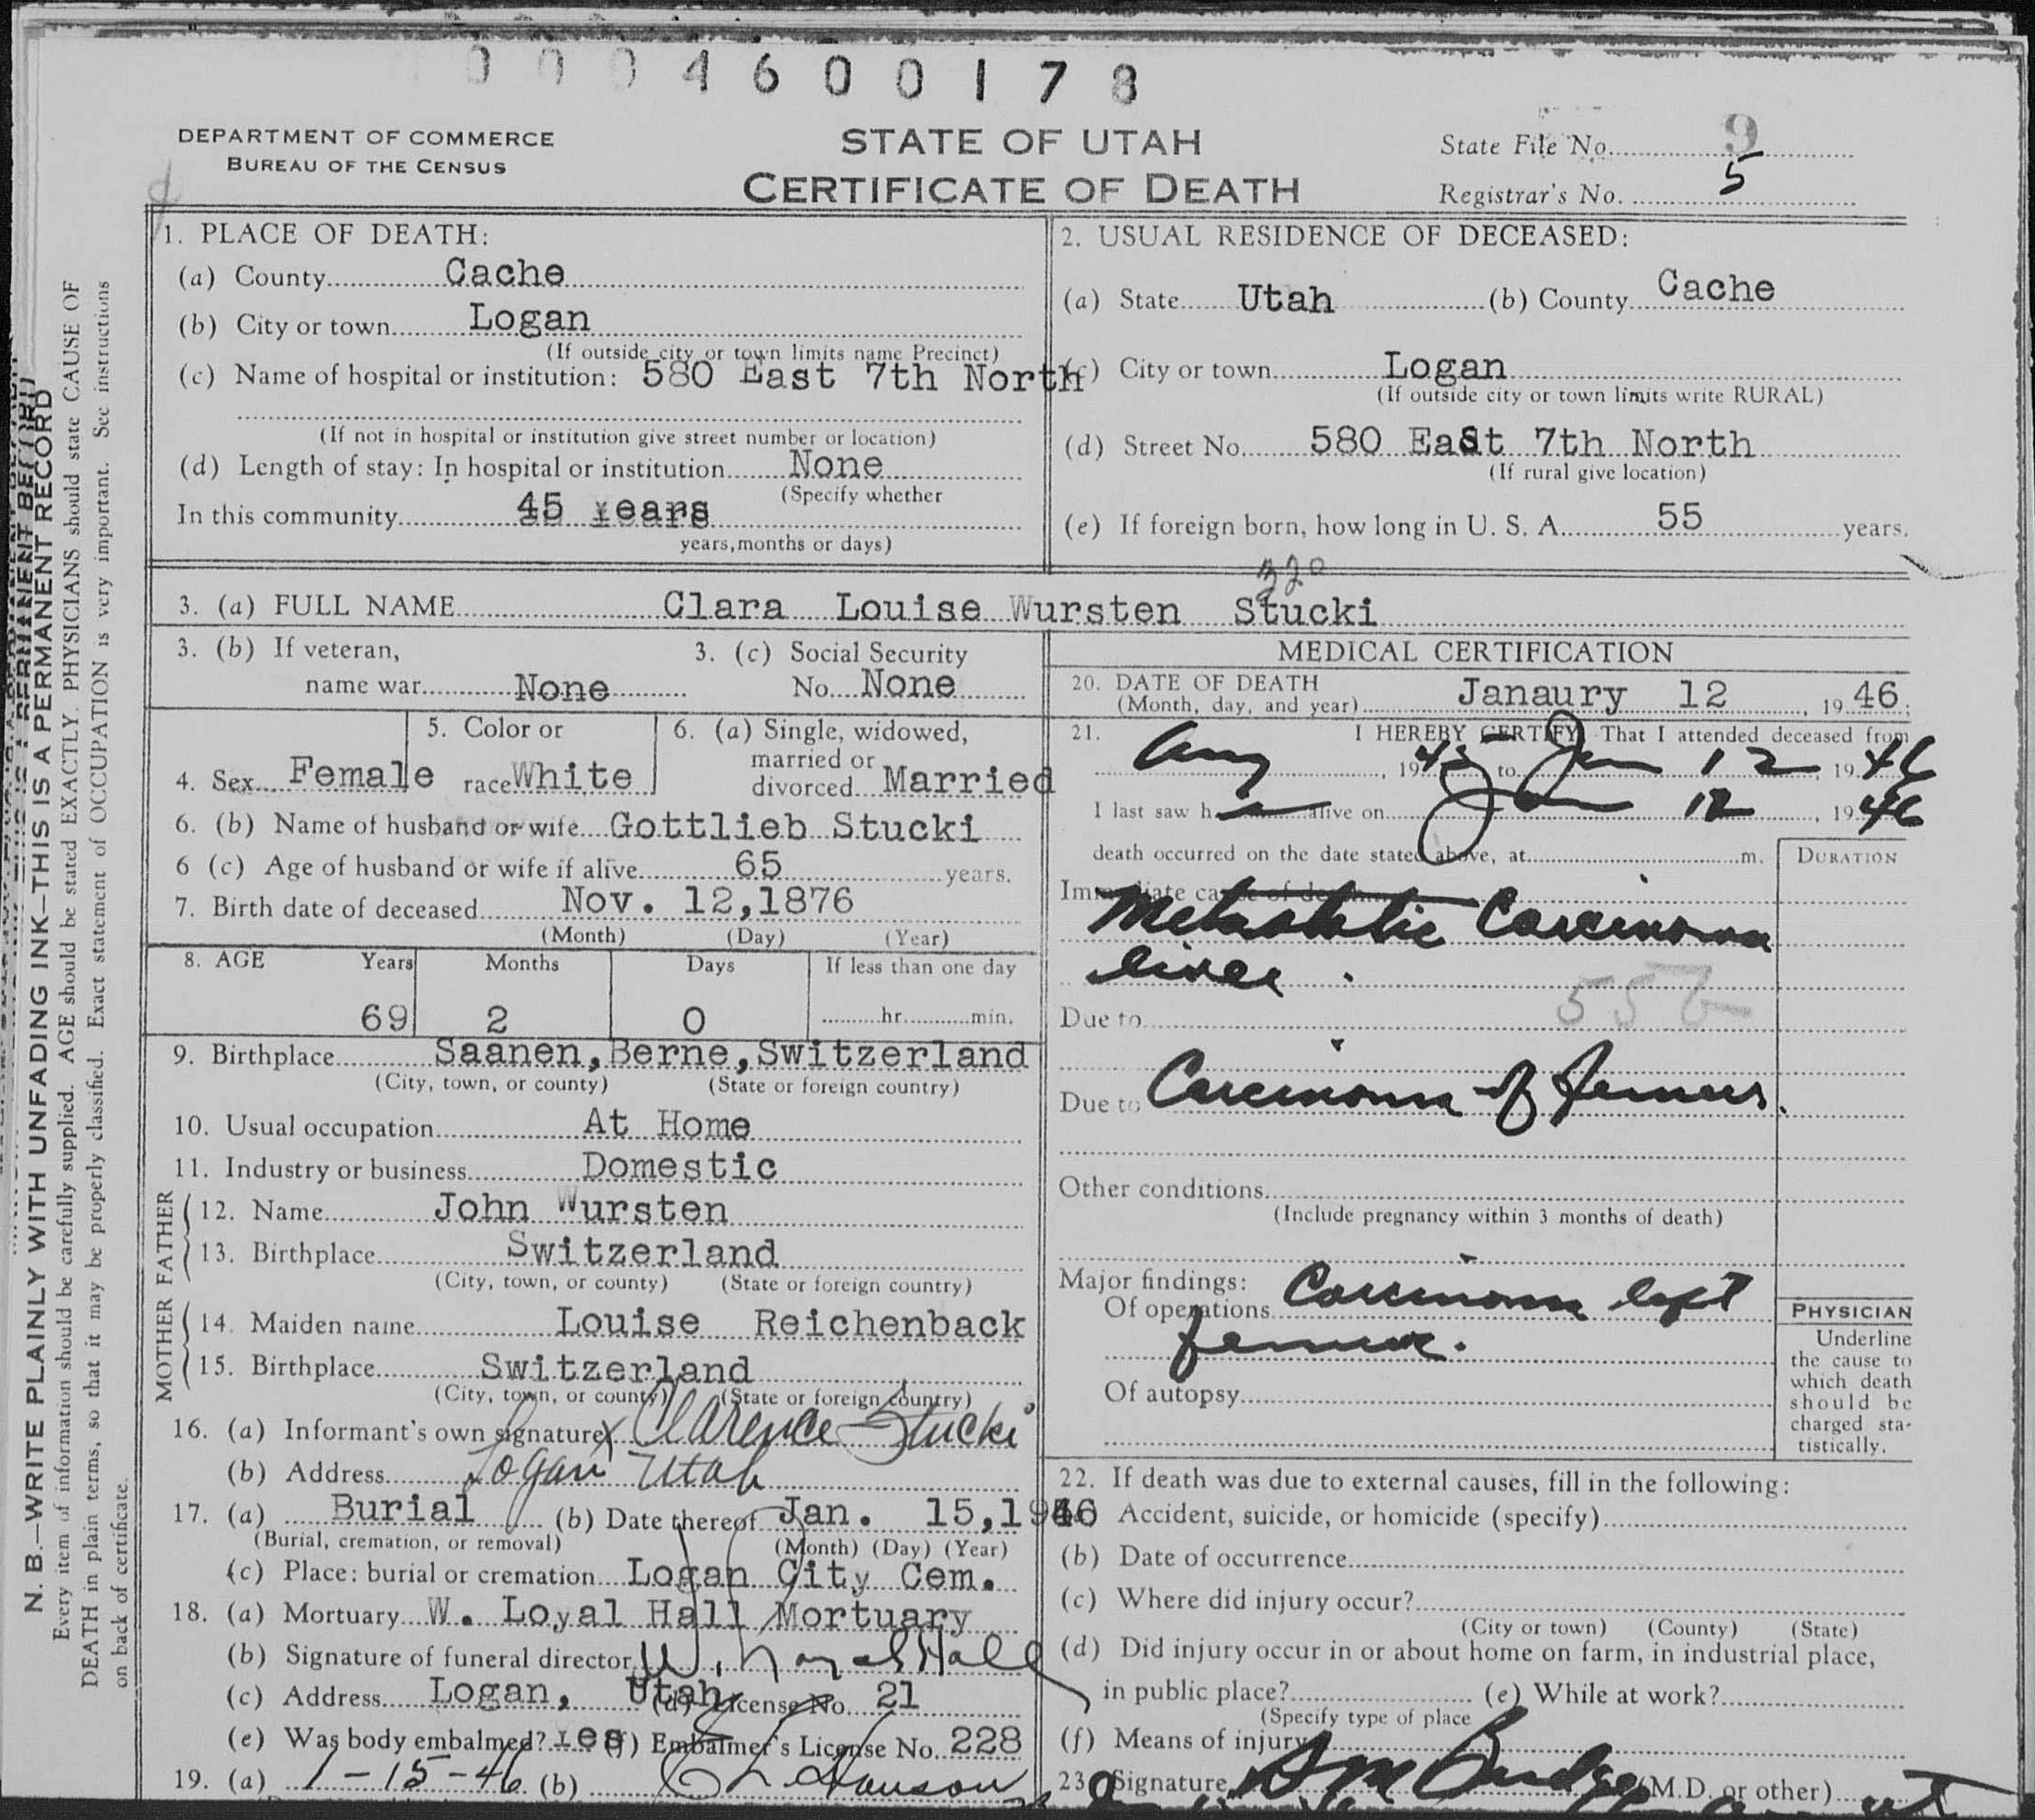 0004600178
DEPARTMENT OF COMMERCE
BUREAU OF THE CENSUS
STATE OF UTAH
CERTIFICATE OF DEATH
State File No. 9
Registrar's No. 5
1. PLACE OF DEATH:
(a) County Cache
(b) City or town Logan
(If outside city or town limits name Precinct)
(c) Name of hospital or institution: 580 East 7th North
(If not in hospital or institution give street number or location)
(d) Length of stay: In hospital or institution None
(Specify whether
In this community 45 Years
years, months or days)
2. USUAL RESIDENCE OF DECEASED:
(a) State Utah (b) County Cache
(c) City or town Logan
(If outside city or town limits write RURAL)
(d) Street No. 580 East 7th North
(If rural give location)
(e) If foreign born, how long in U. S. A. 55 years.
320
3. (a) FULL NAME Clara Louise Wursten Stucki
3. (b) If veteran, name war None
3. (c) Social Security No. None
4. Sex Female
5. Color or race White
6. (a) Single, widowed, married or divorced Married
6. (b) Name of husband or wife Gottlieb Stucki
6 (c) Age of husband or wife if alive 65 years.
7. Birth date of deceased Nov. 12,1876
(Month) (Day) (Year)
8. AGE Years Months Days If less than one day
69 2 0 hr. min.
9. Birthplace Saanen, Berne, Switzerland
(City, town, or county) (State or foreign country)
10. Usual occupation At Home
11. Industry or business Domestic
FATHER
12. Name John Wursten
13. Birthplace Switzerland
(City, town, or county) (State or foreign country)
MOTHER
14. Maiden name Louise Reichenback
15. Birthplace Switzerland
(City, town, or county) (State or foreign country)
16. (a) Informant's own signature X Clarence Stucki
(b) Address Logan Utah
17. (a) Burial (b) Date thereof Jan. 15,1946
(Burial, cremation, or removal) (Month) (Day) (Year)
(c) Place: burial or cremation Logan City Cem.
18. (a) Mortuary W. Loyal Hall Mortuary
(b) Signature of funeral director W. Loyal Hall
(c) Address Logan, Utah (d) License No. 21
(e) Was body embalmed? Yes (f) Embalmer's License No. 228
19. (a) 1-15-46 (b)
MEDICAL CERTIFICATION
20. DATE OF DEATH
(Month, day, and year) Janaury 12, 1946;
21. I HEREBY CERTIFY, That I attended deceased from
Aug, 1945 to Jan 12 1946
I last saw h alive on Jan 12, 1946
death occurred on the date stated above, at m.
DURATION
Immediate cause of death
Metastatic Carcinoma
liver.
556
Due to
Due to Carcinoma of femur.
Other conditions
(Include pregnancy within 3 months of death)
Major findings:
Of operations Carcinoma left
femur.
Of autopsy
PHYSICIAN
Underline
the cause to
which death
should be
charged sta-
tistically.
22. If death was due to external causes, fill in the following:
Accident, suicide, or homicide (specify)
(b) Date of occurrence
(c) Where did injury occur?
(City or town) (County) (State)
(d) Did injury occur in or about home on farm, in industrial place,
in public place? (e) While at work?
(Specify type of place
(f) Means of injury
23. Signature Budge (M.D. or other)
N. B.—WRITE PLAINLY WITH UNFADING INK—THIS IS A PERMANENT RECORD
Every item of information should be carefully supplied. AGE should be stated EXACTLY. PHYSICIANS should state CAUSE OF
DEATH in plain terms, so that it may be properly classified. Exact statement of OCCUPATION is very important. See instructions
on back of certificate.